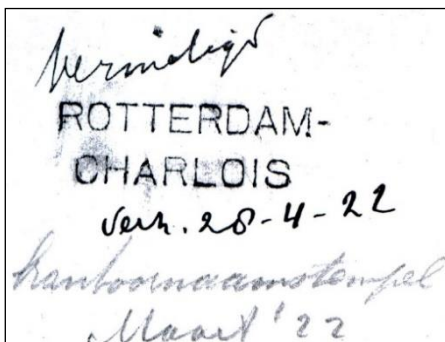 vernietigd
ROTTERDAM-
CHARLOIS
Vern. 28-4-22
kantoornaamstempel
Maart '22